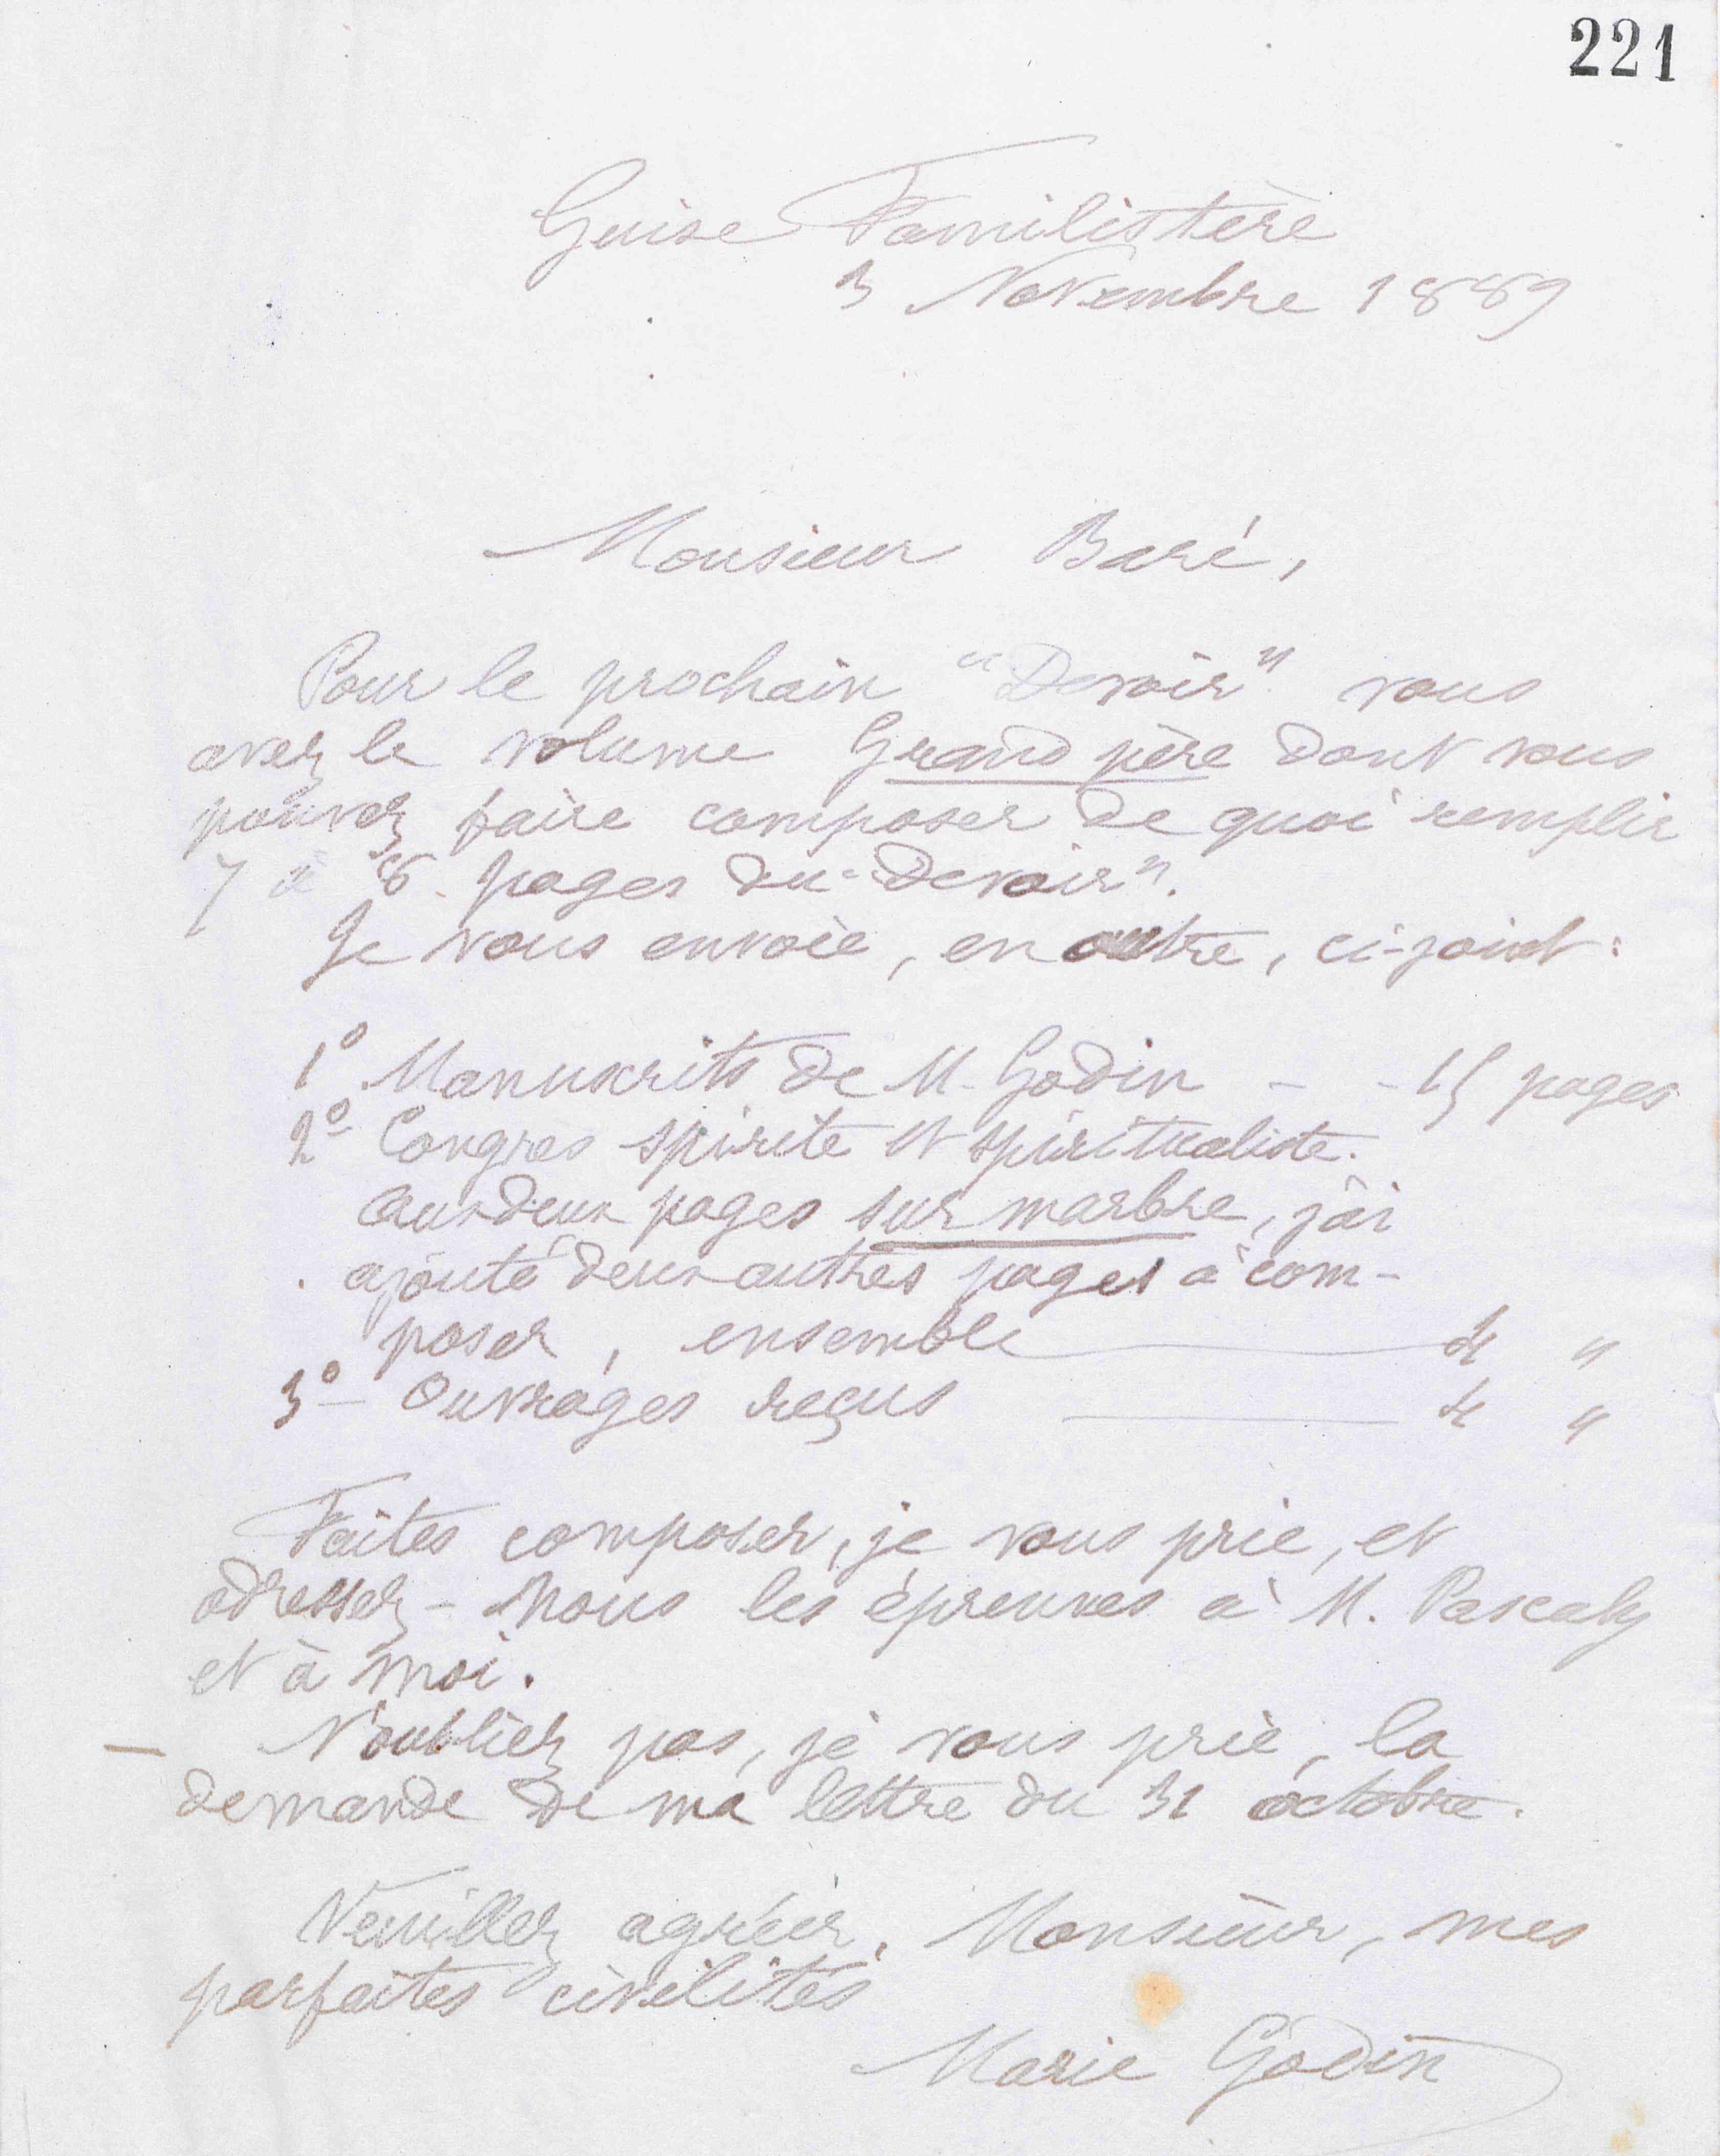 221
Guise Familistère
3 Novembre 1889
Monsieur Baré,
Pour le prochain "Devoir" vous
avez le volume Grand père dont vous
pouvez faire composer de quoi remplir
7 à 8 pages du "Devoir".
Je vous envoie, en outre, ci-joint :
1º Manuscrits de M. Godin - - 15 pages
2º Congrès spirite et spiritualiste.
Aux deux pages sur marbre, j'ai
ajouté deux autres pages à com-
poser, ensemble 4 "
3º - Ouvrages reçus 4 "
Faites composer, je vous prie, et
adressez-nous les épreuves à M. Pascaly
et à moi.
- N'oubliez pas, je vous prie, la
demande de ma lettre du 31 octobre.
Veuillez agréer, Monsieur, mes
parfaites civilités
Marie Godin